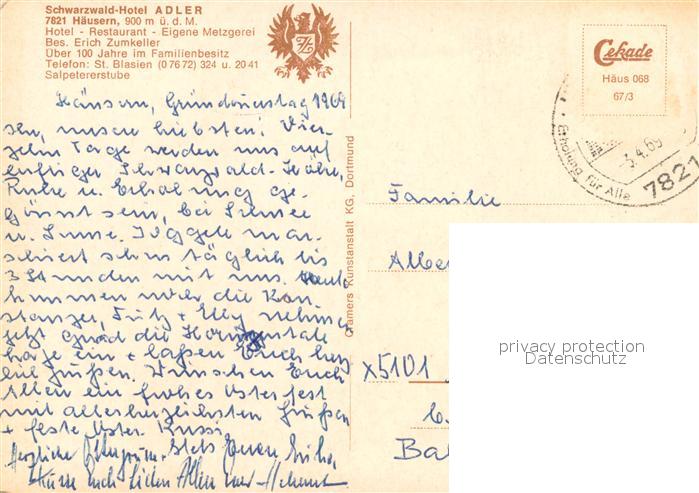 Schwarzwald-Hotel ADLER
7821 Häusern, 900 m ü. d. M.
Hotel - Restaurant - Eigene Metzgerei
Bes. Erich Zumkeller
Über 100 Jahre im Familienbesitz
Telefon: St. Blasien (0 76 72) 324 u. 20 41
Salpetererstube
Cekade
Häus 068
67/3
Erholung für Alle
-3.4.69
7821
Häusern, Gründonnerstag 1969
Ihr, unsere Liebsten! Vier-
zehn Tage werden uns auf
Schwarzwald-Höhe,
Ruhe u. Erholung ge-
gönnt sein, bei Schnee
u. Sonne. mar-
schiert schon täglich bis
3 Stunden mit uns. Heute
kommen noch die Kon-
stanzer, Fritz + Elly nehmen
jetzt grad die
ein + laßen Euch herz-
lich grüßen. Wünschen Euch
Allen ein frohes Osterfest
mit allerherzlichsten Grüßen
+ feste Oster-Kussi
Herzliche Stets Euere
Euch Lieben Allen
Cramers Kunstanstalt KG., Dortmund
Familie
Albe
X5101
Ba
privacy protection
Datenschutz